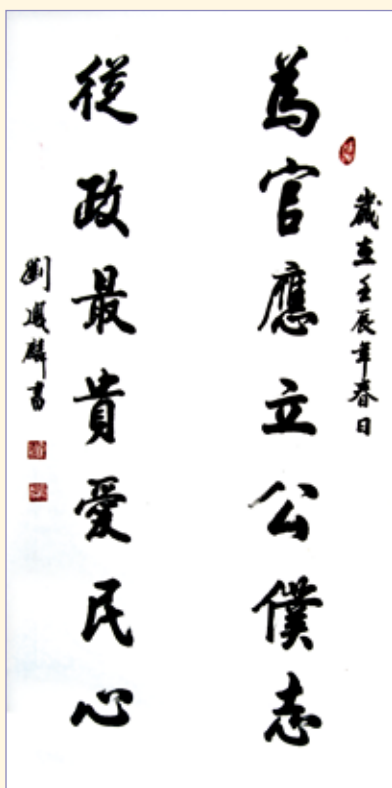 歲在壬辰年春日
為官應立公僕志
從政最貴愛民心
劉鳳麟書